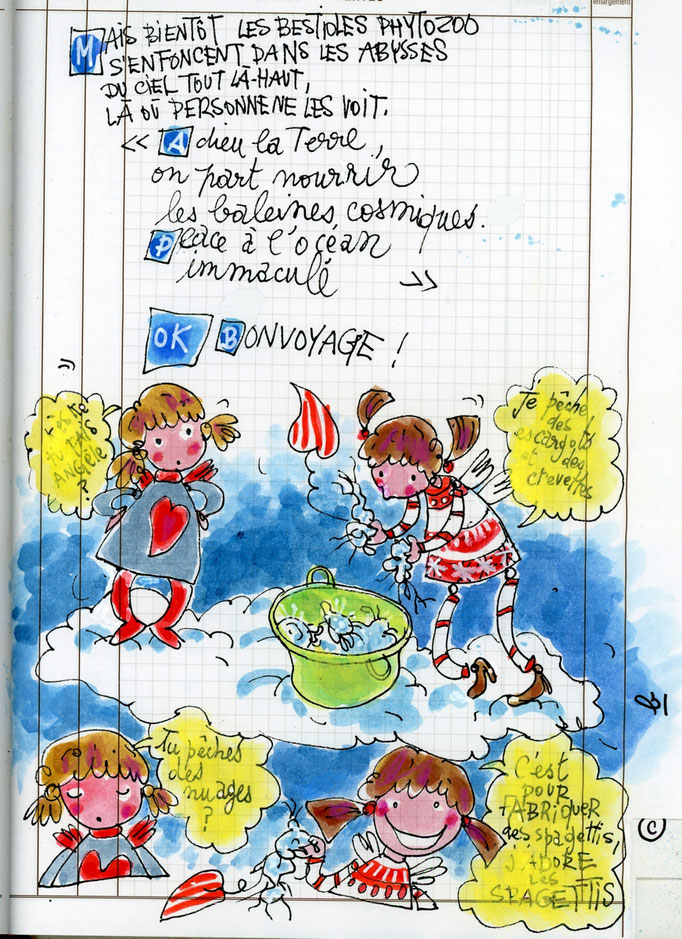 MAIS BIENTÔT LES BESTIOLES PHYTOZOO
S'ENFONCENT DANS LES ABYSSES
DU CIEL TOUT LÀ-HAUT,
LÀ OÙ PERSONNE NE LES VOIT.
<< Adieu la Terre,
on part nourrir
les baleines cosmiques.
Place à l'océan
immaculé >>
OK BONVOYAGE !
tu fais
ANGÈLE
?
Je pêche
des
escargots
et des
crevettes
Tu pêches
des
nuages
?
C'est
POUR
FABRIQUER
des spagettis,
J'ADORE
les
SPAGETTIS
©
émargement